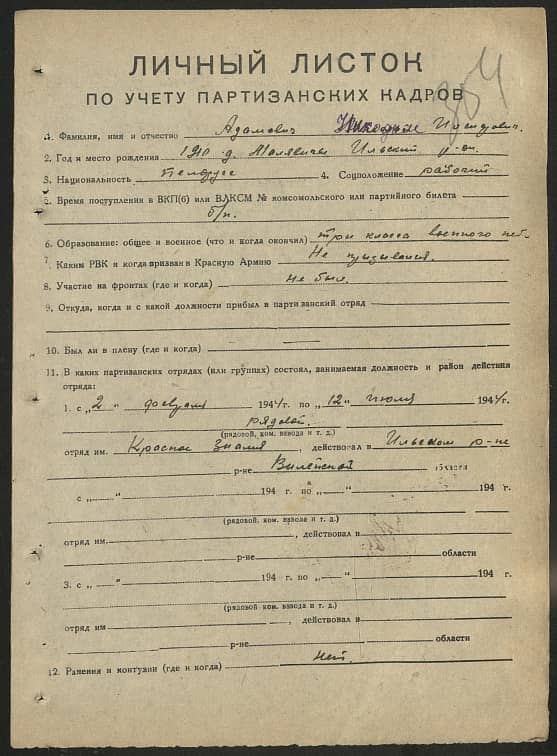 804
ЛИЧНЫЙ ЛИСТОК
ПО УЧЕТУ ПАРТИЗАНСКИХ КАДРОВ
1. Фамилия, имя и отчество Адамович Никодим
2. Год и место рождения 1910 г. Малявичи Ильский р-он.
3. Национальность белорусс 4. Соцположение рабочий
5. Время поступления в ВКП(б) или ВЛКСМ № комсомольского или партийного билета
б/п.
6. Образование: общее и военное (что и когда окончил) три класса военного нет.
7. Каким РВК и когда призван в Красную Армию Не призывался.
8. Участие на фронтах (где и когда) не был.
9. Откуда, когда и с какой должности прибыл в партизанский отряд
10. Был ли в плену (где и когда)
11. В каких партизанских отрядах (или группах) состоял, занимаемая должность и район действия
отряда:
1. с „2 " февраля 1944г. по „12" июля 1944г.
рядовой.
(рядовой, ком. взвода и т. д.)
отряд им. Красное Знамя, действовал в Ильском р-не
р-не Вилейской области
с „ " 194 г. по „ " 194 г.
(рядовой, ком. взвода и т. д.)
отряд им. , действовал в
р-не области
3. с „ " 194 г. по „ " 194 г.
(рядовой, ком. взвода и т. д.)
отряд им , действовал в
р-не области
12. Ранения и контузии (где и когда) нет.